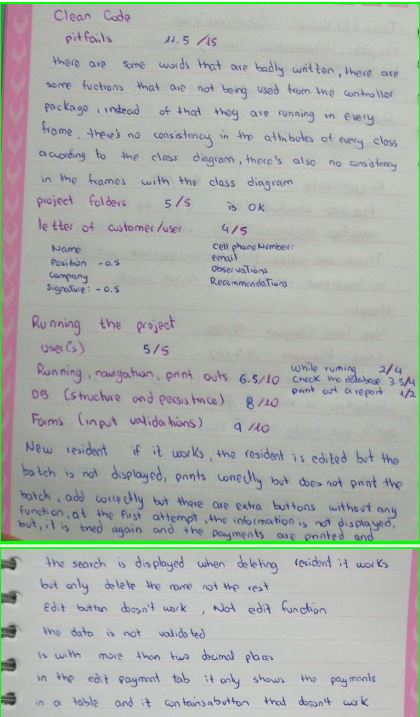 Clean Code
pitfalls 11.5 /15
there are some words that are badly written, there are
some fuctions that are not being used from the controller
package, instead of that they are running in every
frame. there's no consistency in the attributes of every class
according to the class diagram, there's also no consistency
in the frames with the class diagram
project folders 5/5 is OK
letter of customer/user 4/5
Name cell phone Number:
Position -0.5 email
Company Observations
Signature: -0.5 Recommendations
Running the project
User(s) 5/5
Running, navigation, print outs 6.5/10 while running 2/4
check the database 3.5/4
print out a report 1/2
DB (structure and persistance) 8/10
Forms (input validations) 9/10
New resident if it works, the resident is edited but the
batch is not displayed, prints correctly but does not print the
batch, add correctly but there are extra buttons without any
function, at the First attempt, the information is not displayed,
but, it is tried again and the payments are printed and
the search is displayed when deleting resident it works
but only delete the name not the rest
Edit button doesn't work, Not edit function
the data is not validated
is with more than two decimal places
in the edit payment tab it only shows the payments
in a table and it contains a button that doesn't work